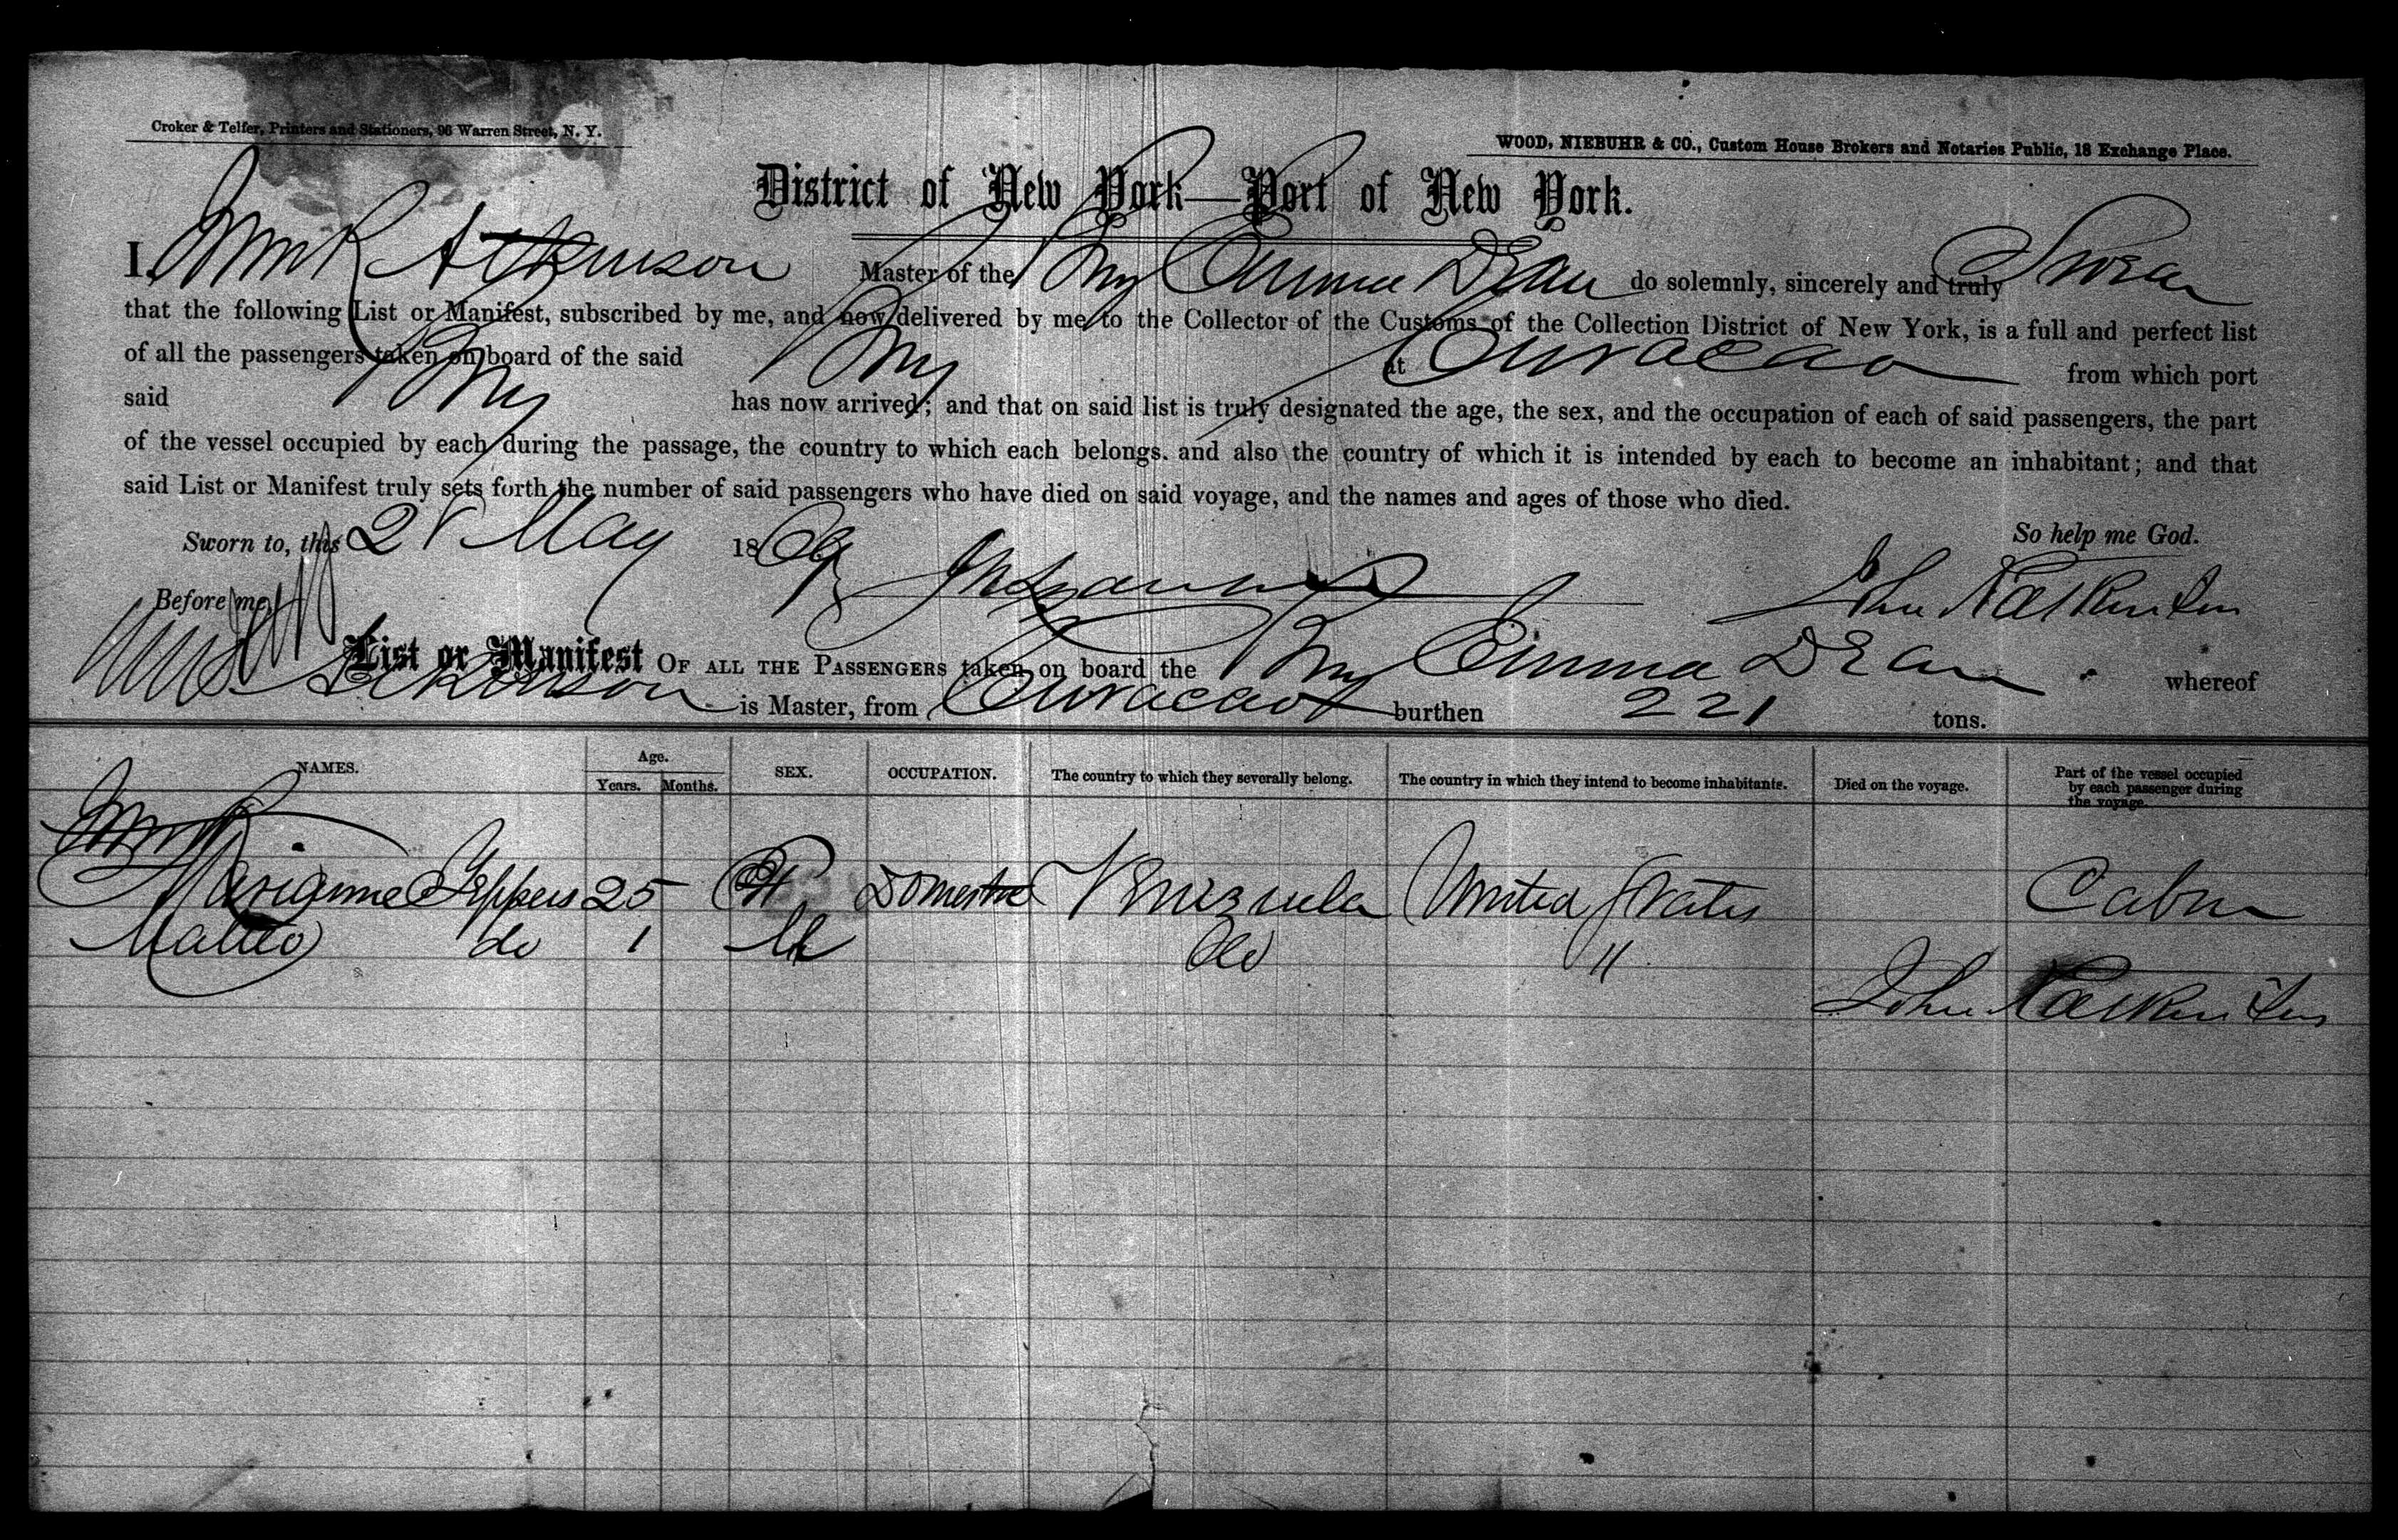 Croker & Telfer, Printers and Stationers, 96 Warren Street, N. Y.
WOOD, NIEBUHR & CO., Custom House Brokers and Notaries Public, 18 Exchange Place.
District of New York—Port of New York.
I, Atkinson Master of the Brig Emma Dean do solemnly, sincerely and truly Swear
that the following List or Manifest, subscribed by me, and now delivered by me to the Collector of the Customs of the Collection District of New York, is a full and perfect list
of all the passengers taken on board of the said Brig at Curacao from which port
said Brig has now arrived; and that on said list is truly designated the age, the sex, and the occupation of each of said passengers, the part
of the vessel occupied by each during the passage, the country to which each belongs. and also the country of which it is intended by each to become an inhabitant; and that
said List or Manifest truly sets forth the number of said passengers who have died on said voyage, and the names and ages of those who died.
Sworn to, this 28 May 1869 So help me God.
Before me, John R Atkinson
List or Manifest OF ALL THE PASSENGERS taken on board the Brig Emma Dean whereof
Atkinson is Master, from Curacao burthen 221 tons.
NAMES. Age. Years. Months. SEX. OCCUPATION. The country to which they severally belong. The country in which they intend to become inhabitants. Died on the voyage. Part of the vessel occupied by each passenger during the voyage.
Marianne Jeppers 25 Domestic Venizuela United States Cabin
Matteo do 1 M do "
John R Atkinson